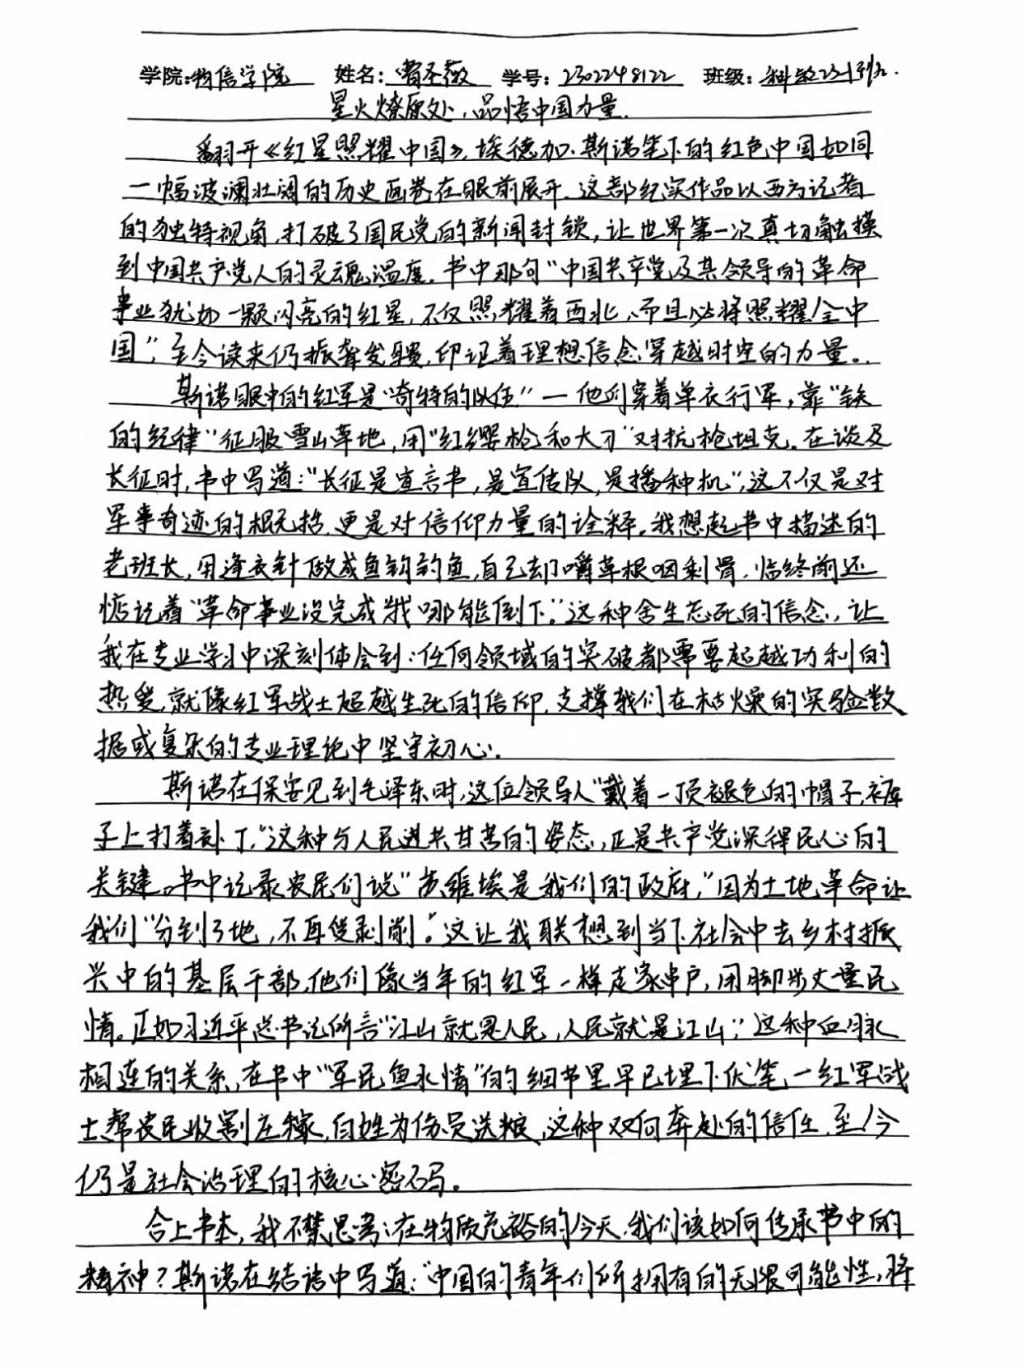 学院:物信学院 姓名:曹丕薇 学号:2302248122 班级:科教23-1
星火燎原处,品悟中国力量.
翻开《红星照耀中国》,埃德加·斯诺笔下的红色中国如同
一幅波澜壮阔的历史画卷在眼前展开.这部纪实作品以西方记者
的独特视角,打破了国民党的新闻封锁,让世界第一次真切触摸
到中国共产党人的灵魂温度.书中那句“中国共产党及其领导的革命
事业犹如一颗闪亮的红星,不仅照耀着西北,而且必将照耀全中
国”,至今读来仍振聋发聩,印记着理想信念穿越时空的力量。.
斯诺眼中的红军是“奇特的队伍”—他们穿着单衣行军,靠“铁
的纪律”征服雪山草地,用“红缨枪和大刀”对抗枪坦克.在谈及
长征时,书中写道:“长征是宣言书,是宣传队,是播种机”,这不仅是对
军事奇迹的概括,更是对信仰力量的诠释.我想起书中描述的
老班长,用逢衣针做成鱼钩钓鱼,自己却嚼草根咽剩骨.临终前还
惦记着“革命事业没完成我哪能倒下.”这种舍生忘死的信念,让
我在专业学习中深刻体会到:任何领域的突破都需要超越功利的
热爱,就像红军战士超越生死的信仰,支撑我们在枯燥的实验数
据或复杂的专业理论中坚守初心.
斯诺在保安见到毛泽东时,这位领导人“戴着一顶褪色的帽子,裤
子上打着补丁,”这种与人民共甘苦的姿态,正是共产党深得民心的
关键.书中记录农民们说“苏维埃是我们的政府,”因为土地革命让
我们“分到了地,不再受剥削。”这让我联想到当下社会中去乡村振
兴中的基层干部,他们像当年的红军一样走家串户,用脚步丈量民
情。正如习近平总书记所言“江山就是人民,人民就是江山”;这种血脉
相连的关系,在书中“军民鱼水情”的细节里早已埋下伏笔,—红军战
士帮农民收割庄稼,百姓为伤员送粮,这种双向奔赴的信任,至今
仍是社会治理的核心密码。
合上书本,我不禁思考:在物质充裕的今天,我们该如何传承书中的
精神?斯诺在结语中写道:“中国的青年们所拥有的无限可能性,将